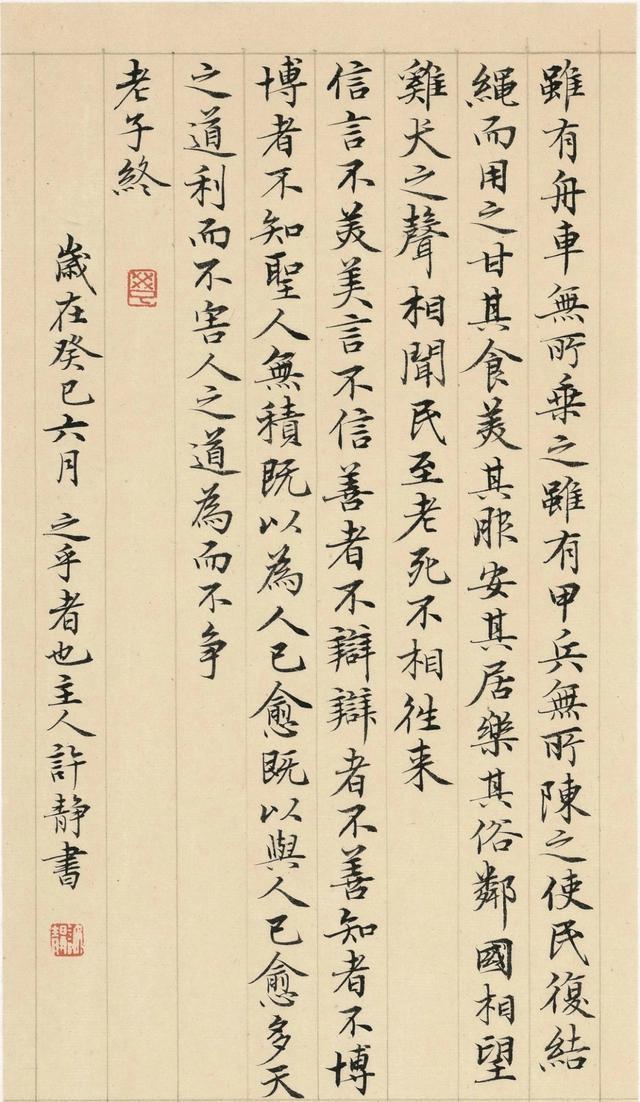 雖有舟車無所乗之雖有甲兵無所陳之使民復結
繩而用之甘其食美其服安其居樂其俗鄰國相望
雞犬之聲相聞民至老死不相往来
信言不美美言不信善者不辯辯者不善知者不博
博者不知聖人無積既以為人已愈既以與人已愈多天
之道利而不害人之道為而不争
老子終
歲在癸巳六月之乎者也主人許靜書